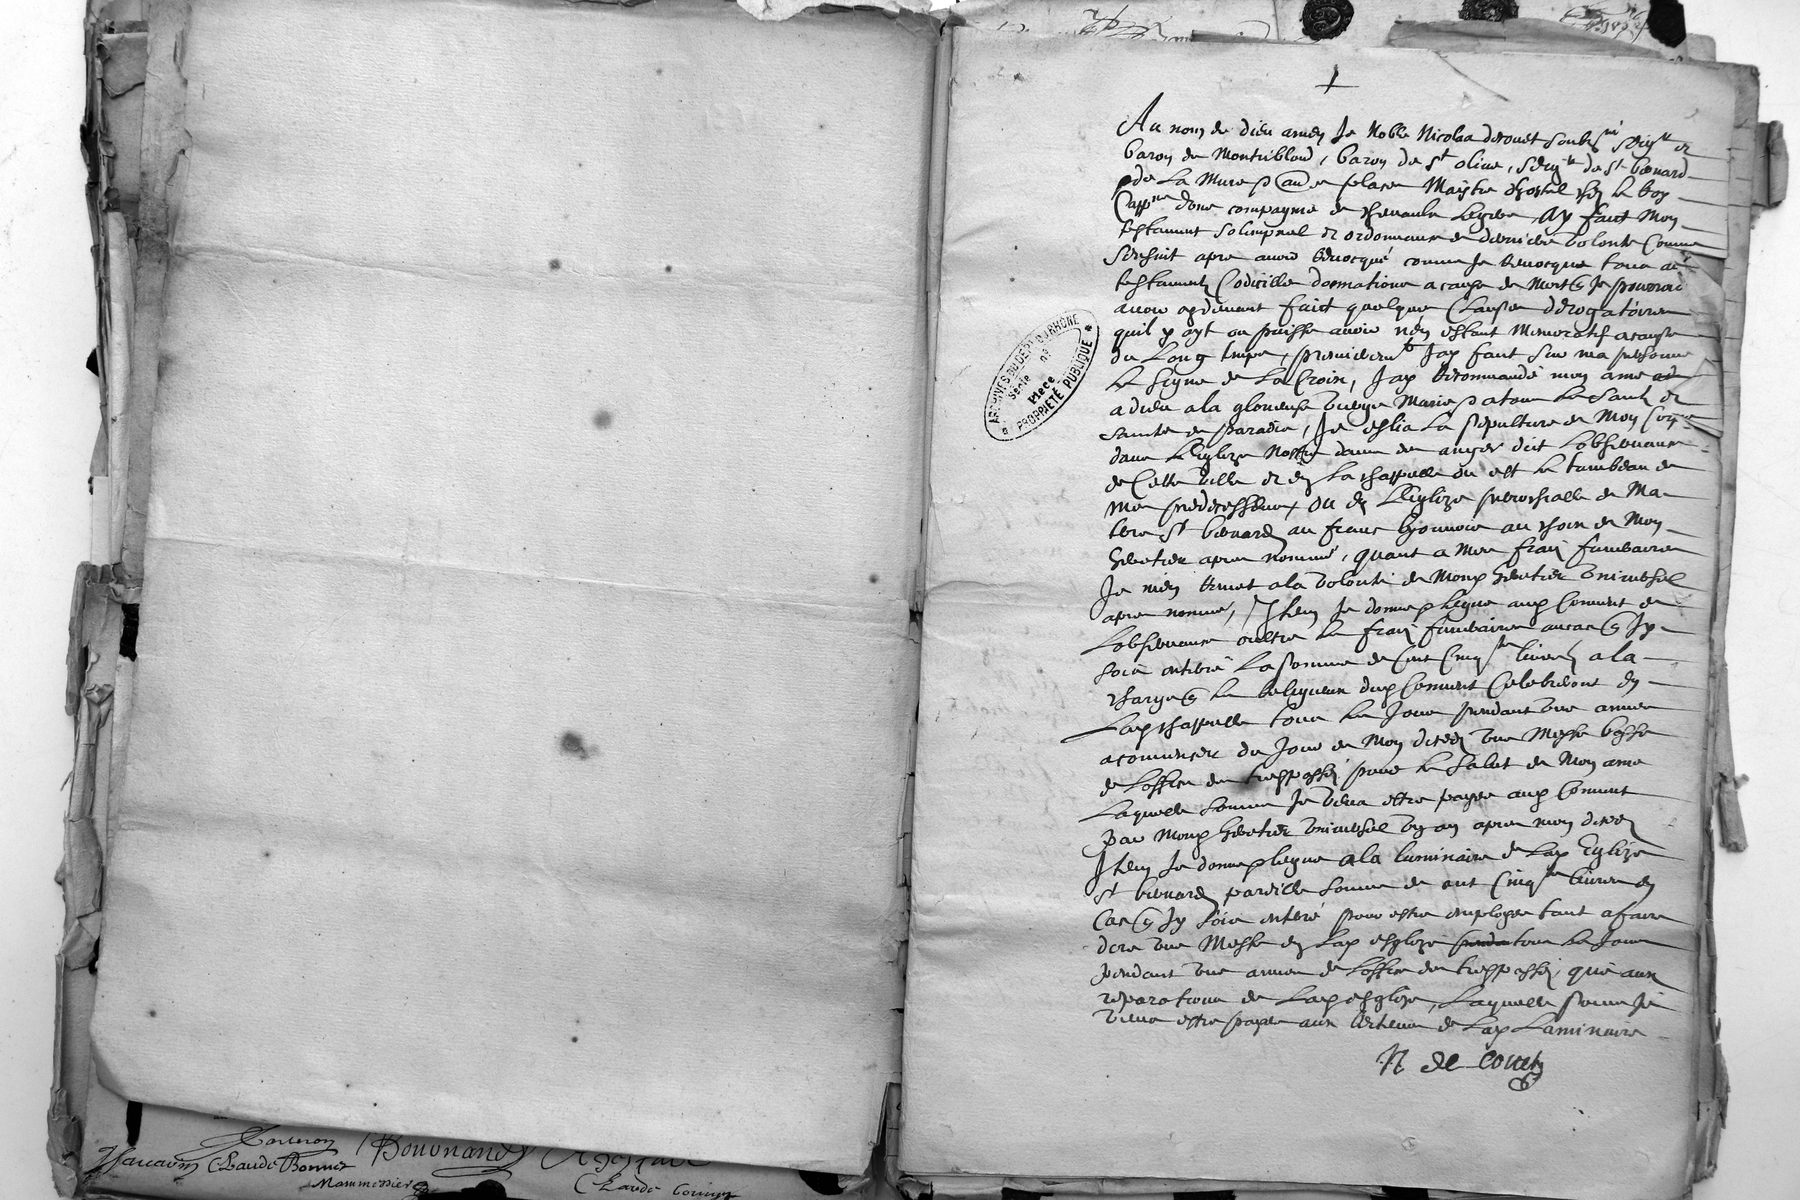 Au nom de dieu amen Je Noble Nicolas decouet soubz.né seigr et
baron de Montribloud, baron de st olive, seigr de st bernard
de La Mure Maistre dhostel chez le Roy
Cappne dune compagnie de chevaulx legers Ay fait Mon
testament solempnel et ordonnance de derniere volonté Comme
sensuit apres avoir Revocqué comme Je Revocque tous
testaments Codicilles donnations a cause de Mort q Je pourrois
avoir cydevant fait quelque Clause derogatoires
quil y ayt ou puisse avoir nen estant Memoratif a cause
du Long temps, premieremt Jay fait sur ma personne
Le signe de La Croix, Jay Recommandé mon ame
a dieu a la glorieuse vierge Marie a tous Les saints et
saintes de paradis, Je eslis La sepulture de Mon Corps
dans Leglize Nostre dame de dit Lobservance
de Cette ville et en La chappelle ou est Le tumbeau de
mes predecesseurs, ou en Leglize parrochialle de Ma
terre st bernard au franc Lyonnois au choix de Mon
heretier apres nommé, quant a Mes fraiz funeraires
Je men Remet a la volonté de Mond heretier universel
apres nommé, Item Je donne & legue aud Couvent de
Lobservance oultre Les fraiz funeraires aucas q Jy
sois enterré La somme de Cent Cinqte livres a la
charge q Les Religieux dud Couvent Celebreront en
Lad chappelle tous Les Jours pendant une annee
a commencer du Jour de Mon deces une Messe basse
de Loffice des trespassez pour Le salut de Mon ame
Laquelle somme Je veux estre payee aud Couvent
par Mond heretier universel un an apres mon deces
Item Je donne & legue a la luminaire de Lad Eglize
st bernard pareille somme de cent Cinqte livres en
Cas q Jy sois enterré pour estre employee tant a faire
dire une Messe en Lad esglize tous les Jours
pendant une annee de Loffice des trespassez, que aux
reparations de Lad esglize, Laquelle somme Je
veux estre payee aux Recteurs de Lad Luminaire
N de couet
ARCHIVES DU DEPT DU RHÔNE
Série No
Pièce
PROPRIÉTÉ PUBLIQUE
Claude Bonnet
Mommessier
Claude